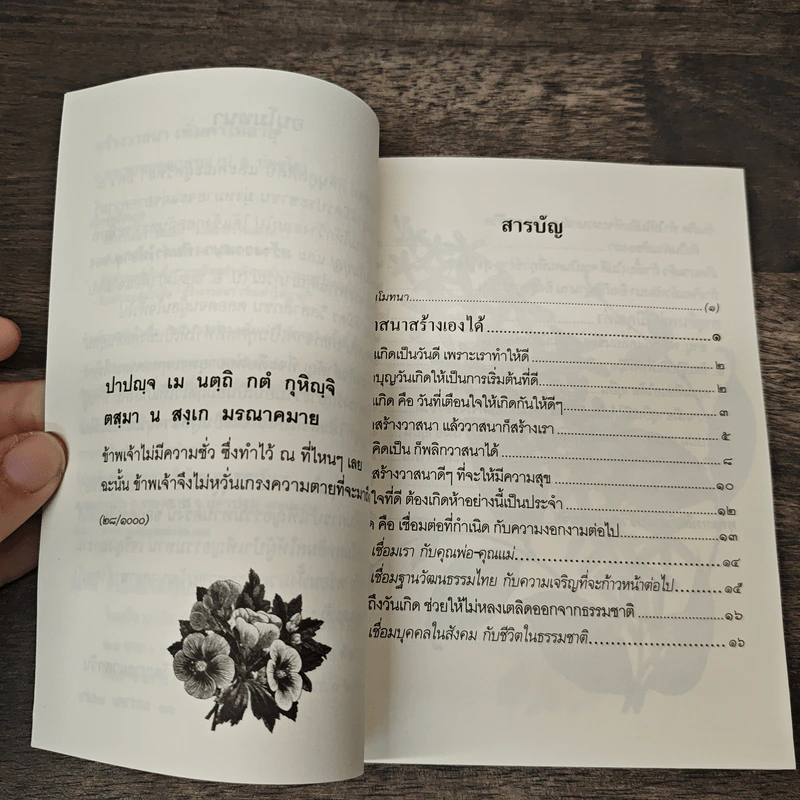 ปาปญฺจ เม นตฺถิ กตํ กุหิญฺจิ
ตสฺมา น สงฺเก มรณาคมาย
ข้าพเจ้าไม่มีความชั่ว ซึ่งทำไว้ ณ ที่ไหนๆ เลย
ฉะนั้น ข้าพเจ้าจึงไม่หวั่นเกรงความตายที่จะมา
(๒๘/๑๐๐๐)
สารบัญ
โมทนา (๑)
าสนาสร้างเองได้ ๑
นเกิดเป็นวันดี เพราะเราทำให้ดี ๒
บุญวันเกิดให้เป็นการเริ่มต้นที่ดี ๒
เกิด คือ วันที่เตือนใจให้เกิดกันให้ดีๆ ๓
สร้างวาสนา แล้ววาสนาก็สร้างเรา ๕
คิดเป็น ก็พลิกวาสนาได้ ๘
สร้างวาสนาดีๆ ที่จะให้มีความสุข ๑๐
ใจที่ดี ต้องเกิดห้าอย่างนี้เป็นประจำ ๑๒
คือ เชื่อมต่อที่กำเนิด กับความงอกงามต่อไป ๑๓
เชื่อมเรา กับคุณพ่อ-คุณแม่ ๑๔
เชื่อมฐานวัฒนธรรมไทย กับความเจริญที่จะก้าวหน้าต่อไป ๑๕
ถึงวันเกิด ช่วยให้ไม่หลงเตลิดออกจากธรรมชาติ ๑๖
เชื่อมบุคคลในสังคม กับชีวิตในธรรมชาติ ๑๖